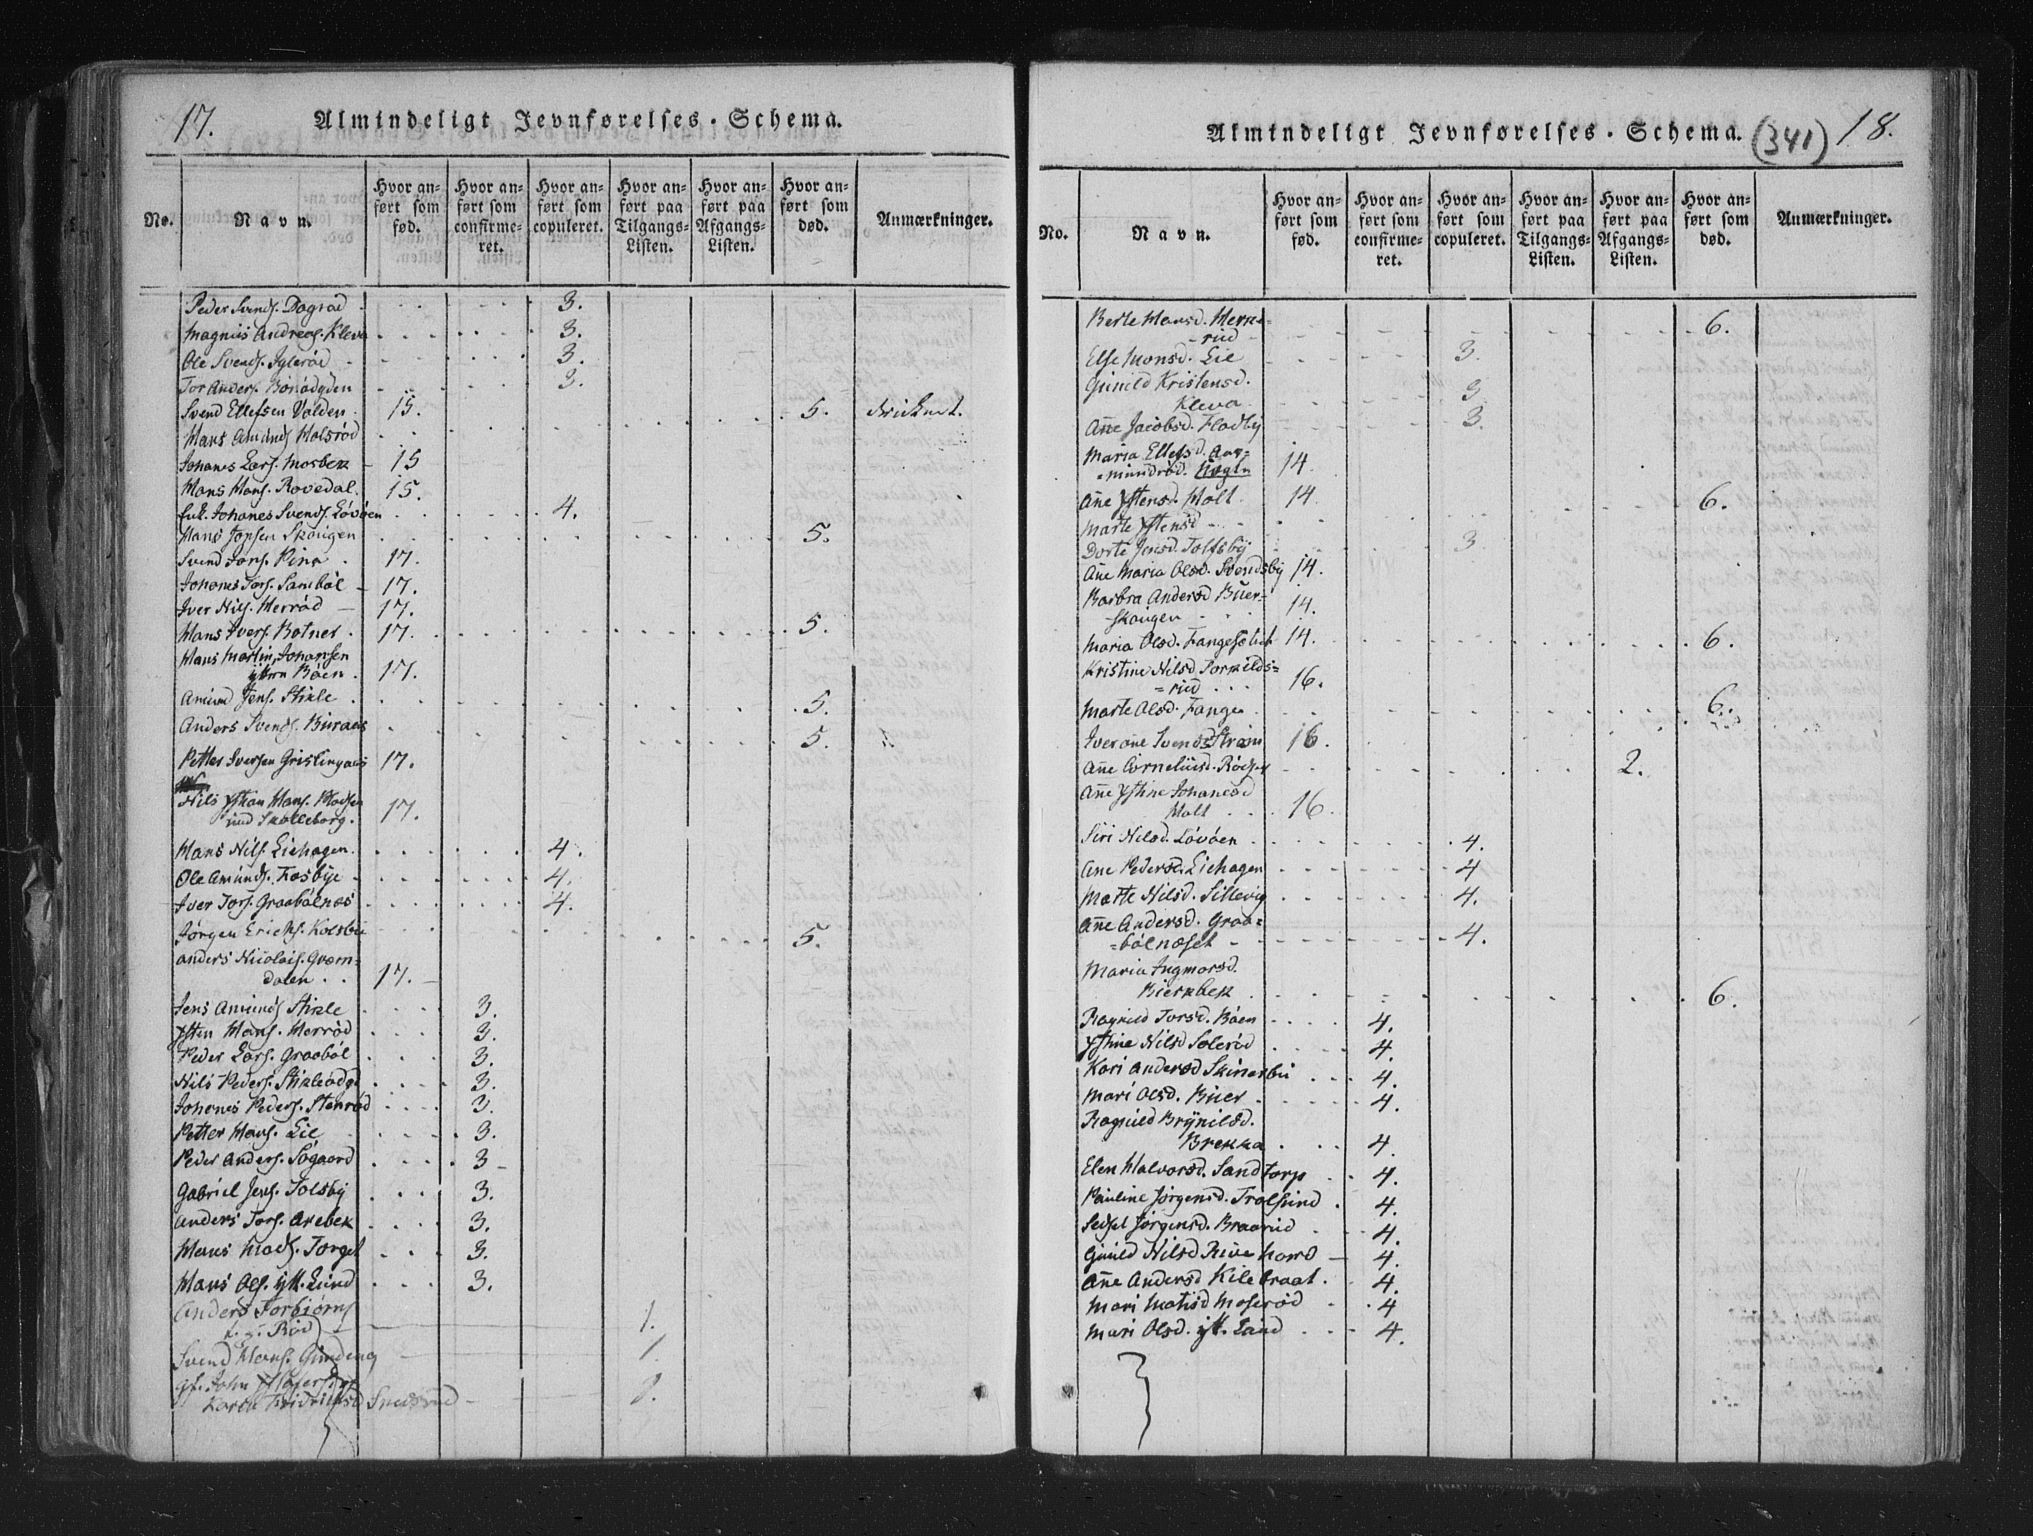 17.
Almindeligt Jevnførelses-Schema.
No.
Navn.
Hvor an-
ført som
fød.
Hvor an-
ført som
confirme-
ret.
Hvor an-
ført som
copuleret.
Hvor an-
ført paa
Tilgangs-
Listen.
Hvor an-
ført paa
Afgangs-
Listen.
Hvor an-
ført som
død.
Anmærkninger.
Peder Svends. Dograd 3.
Magnus Andreas. Kleva 3.
Ole Svends. Iglerød 3.
Tor Anders. 3.
Svend Ellefsen Valden 15. 5. druknet.
Hans Amunds Holsrød
Johanes Lars. Mosbek 15
Hans Hans. Rovedal 15.
Enk. Johanes Svends. Løvøen 4.
Hans Jopsen Skougen 5.
Svend Tors. 17.
Johanes Tors. Sambøl 17.
Iver Nils. Herrød 17.
Hans Ivers. Botner 17. 5.
Hans Martin Johansen
Bøen 17.
Amund Jens. Stikle 5.
Anders Svends. Buraas 5.
Petter Iversen Grislingaas 17.
Nils Hans. Madsen
Skolleborg. 17.
Hans Nils. Liehagen 4.
Ole Amunds. Fosbye 4.
Iver Tors. Graabølnes 4.
Jørgen Erichs. Kolsbu 5.
Anders Nicolais. Gvern-
dalen 17.
Jens Amunds Stikle 3.
Ysten Hans. Herrød 3.
Peder Lars. Graabøl 3.
Nils Peders. Stikleødgd 3.
Johanes Peders. Stenrød 3.
Petter Hans. Lie 3.
Peder Anders. Søgaard 3
Gabriel Jens. Solsby 3.
Anders Tors. Arebek 3.
Hans Mads. Torget 3.
Hans Ols. ytt. Lund 3.
Anders Torbiørns
Rød 1.
Svend Hans. Gundeng 1.
gf. John
Karen Fridrichsd 1.
Almindeligt Jevnførelses-Schema. (341) 18.
No.
Navn.
Hvor an-
ført som
fød.
Hvor an-
ført som
confirme-
ret.
Hvor an-
ført som
copuleret.
Hvor an-
ført paa
Tilgangs-
Listen.
Hvor an-
ført paa
Afgangs-
Listen.
Hvor an-
ført som
død.
Anmærkninger.
Berte Hansd. Merke-
-rud 6.
Else Monsd. Lie 3.
Gunild Kristensd.
Kleva 3
Añe Jacobsd. Flodby 3.
Maria Ellefsd. Aar-
mundrød. 14.
Añe Ystensd. Holt 14. 6.
Marte Ystensd
Dorte Jensd. Tolfsby 3
Añe Maria Olsd. Svendsby 14.
Barbra Andersd Buer-
skougen 14.
Maria Olsd. Fangeslet 14. 6.
Kristine Nilsd Torkilds-
=rud 16.
Marte Olsd. Fange 6.
Iverañe Svendsd Strøm 16.
Añe Corneliusd. Rødsen 2.
Añe Ystine Johanesd
Holt 16.
Siri Nilsd. Løvøen 4.
Ane Pedersd. Liehagen 4
Marte Nilsd. Sillevig 4.
Añe Andersd. Graa-
=bølnæset 4.
Maria Ingmarsd.
Bierkbek 6.
Ragnild Torsd. Bøen 4.
Ystine Nilsd Solerød 4.
Kari Andersd Skinerbu 4.
Mari Olsd. Buer 4.
Ragnild Brynilsd.
Brekka 4.
Elen Halvorsd. Sandtorp 4.
Pauline Jørgensd. Tralsund 4.
Sedsel Jørgensd. Braarud 4.
Gunild Nilsd 4.
Añe Andersd Kilebraat. 4.
Mari Matisd Moserød 4
Mari Olsd. ytt. Lund 4.